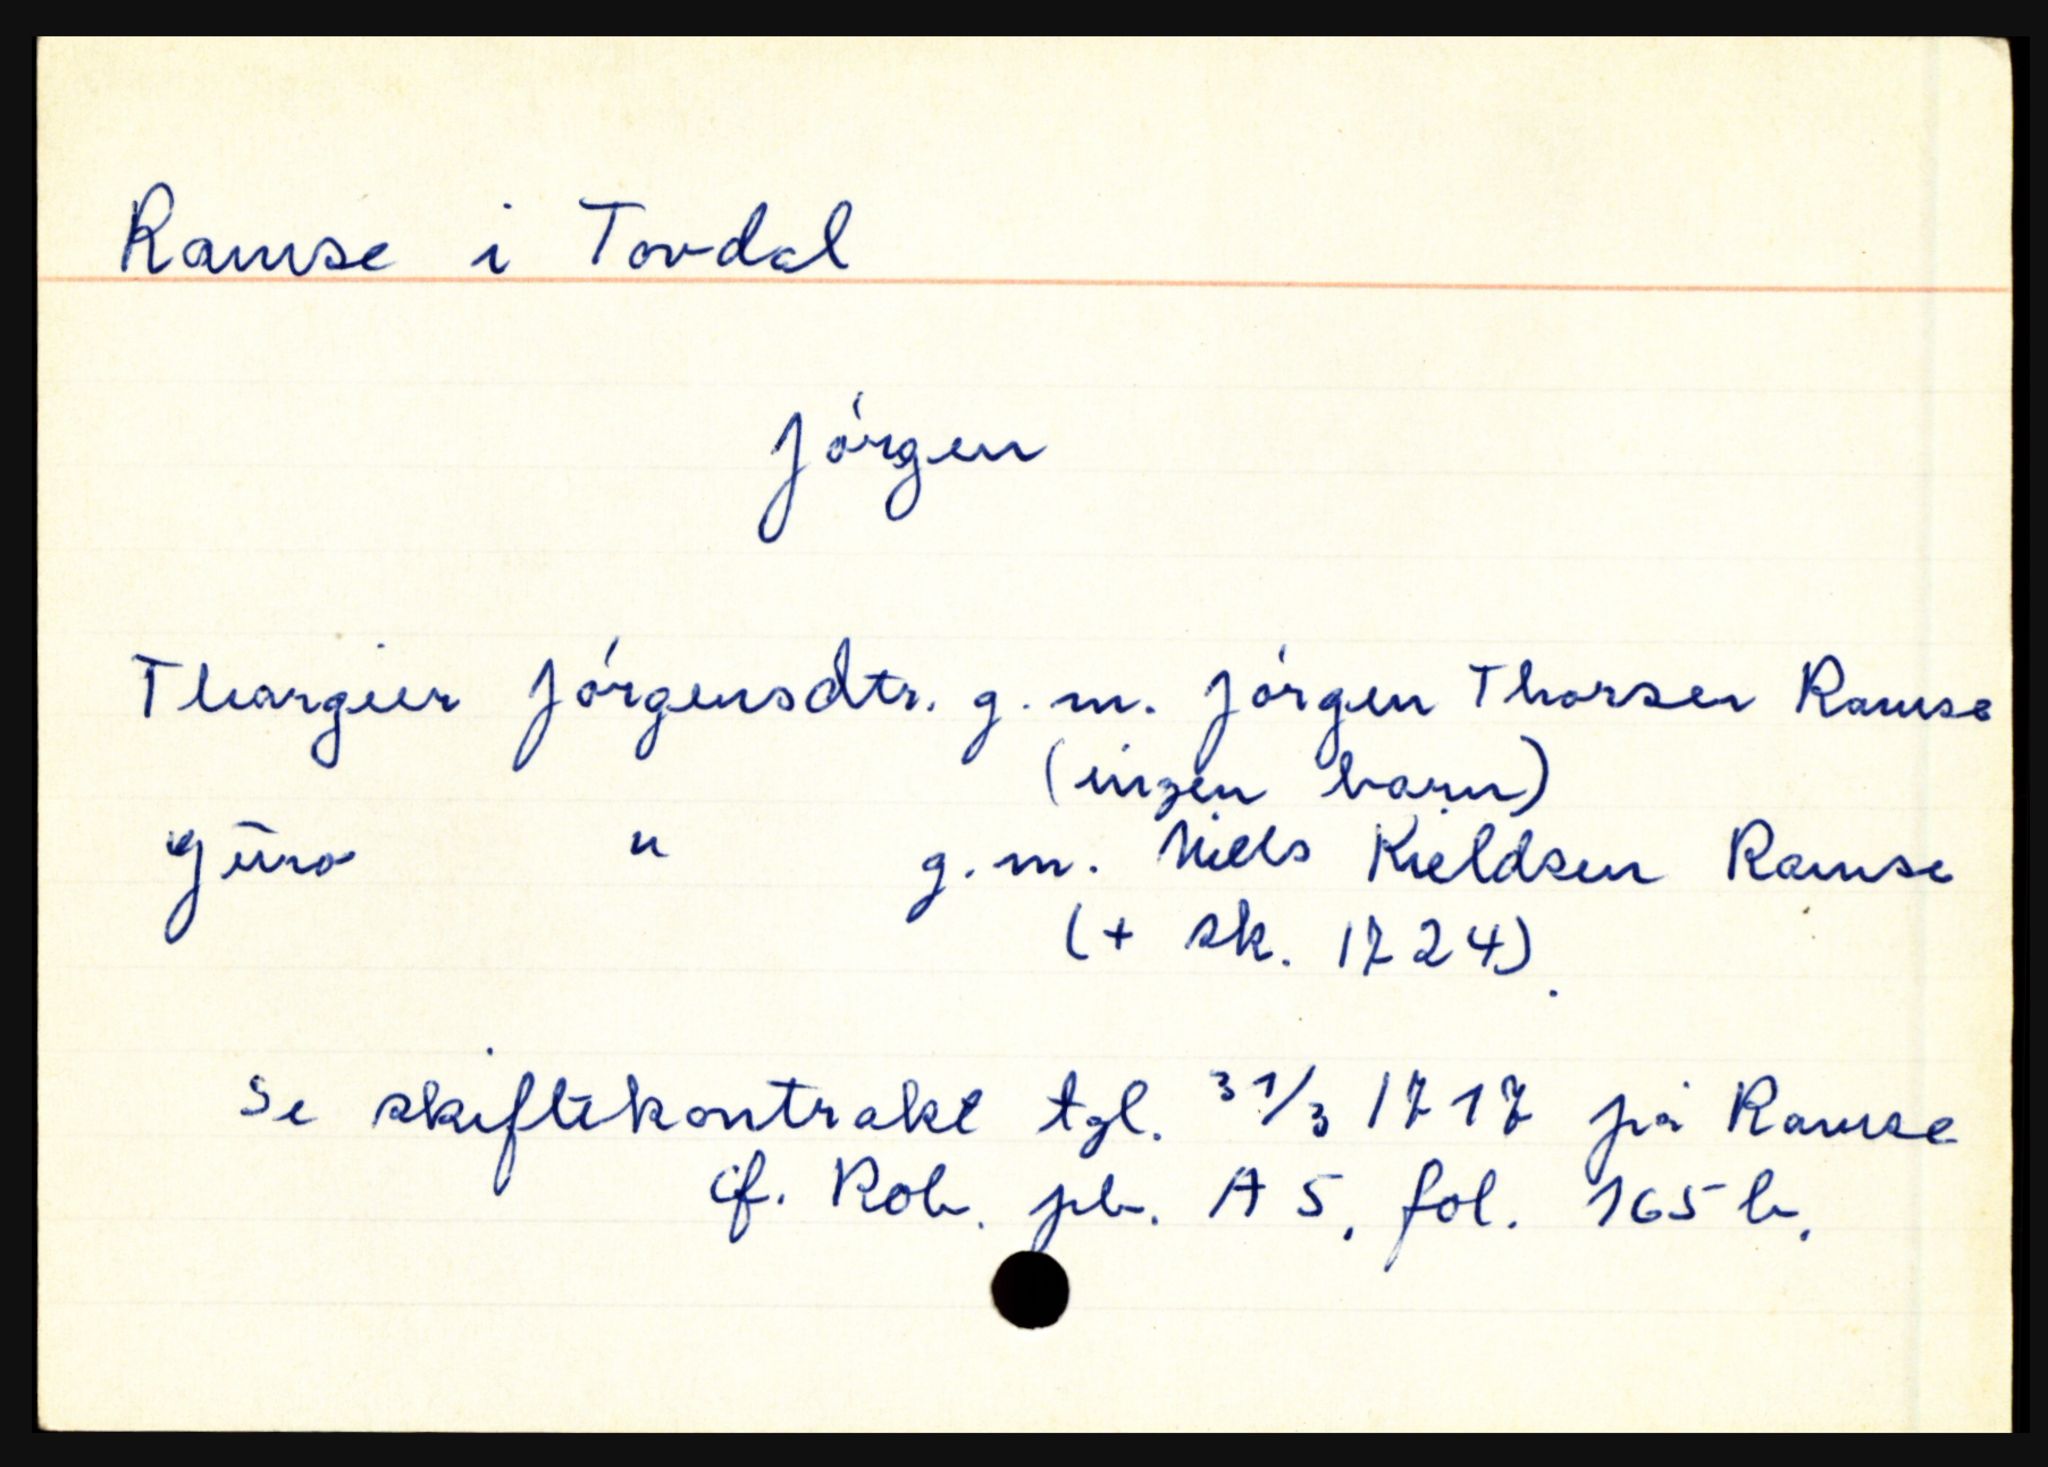 Ramse i Tovdal
Jórgen
Thorgier Jórgensdtr. g. m. Jórgen Thorsen Ramse
(ingen barn)
Gūro " g. m. Niels Kieldsen Ramse
(+ sk. 1724).
Se skiftekontrakt tgl. 31/3 1717 på Ramse
cf. Rob. pb. A 5, fol. 165 b.